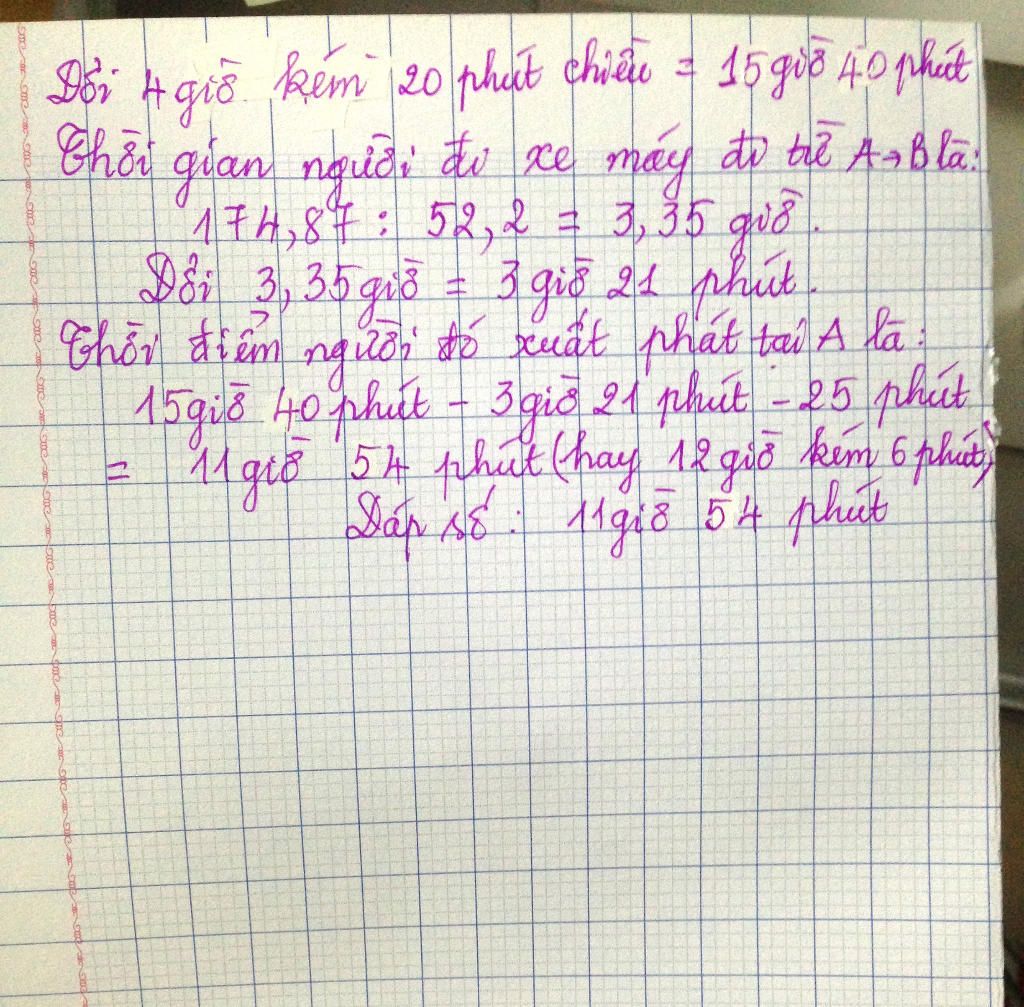 Đổi 4 giờ kém 20 phút chiều = 15 giờ 40 phút
Thời gian người đi xe máy đi từ A→B là:
174,87 : 52,2 = 3,35 giờ.
Đổi 3,35 giờ = 3 giờ 21 phút.
Thời điểm người đó xuất phát tại A là:
15 giờ 40 phút - 3 giờ 21 phút - 25 phút
= 11 giờ 54 phút (hay 12 giờ kém 6 phút)
Đáp số : 11 giờ 54 phút